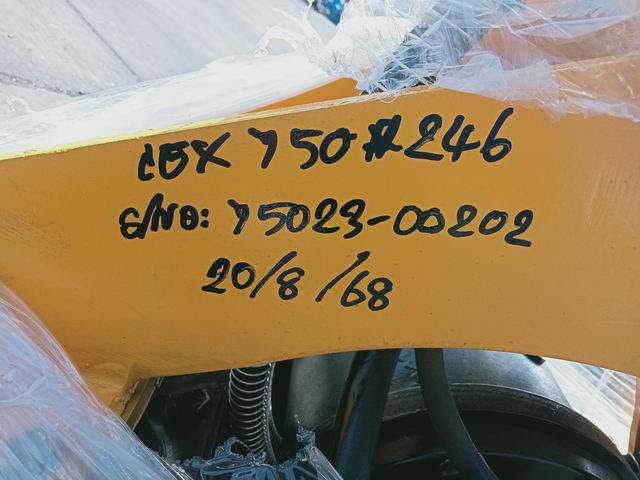 LOX 750 #246
S/NO: 75023-00202
20/8/68